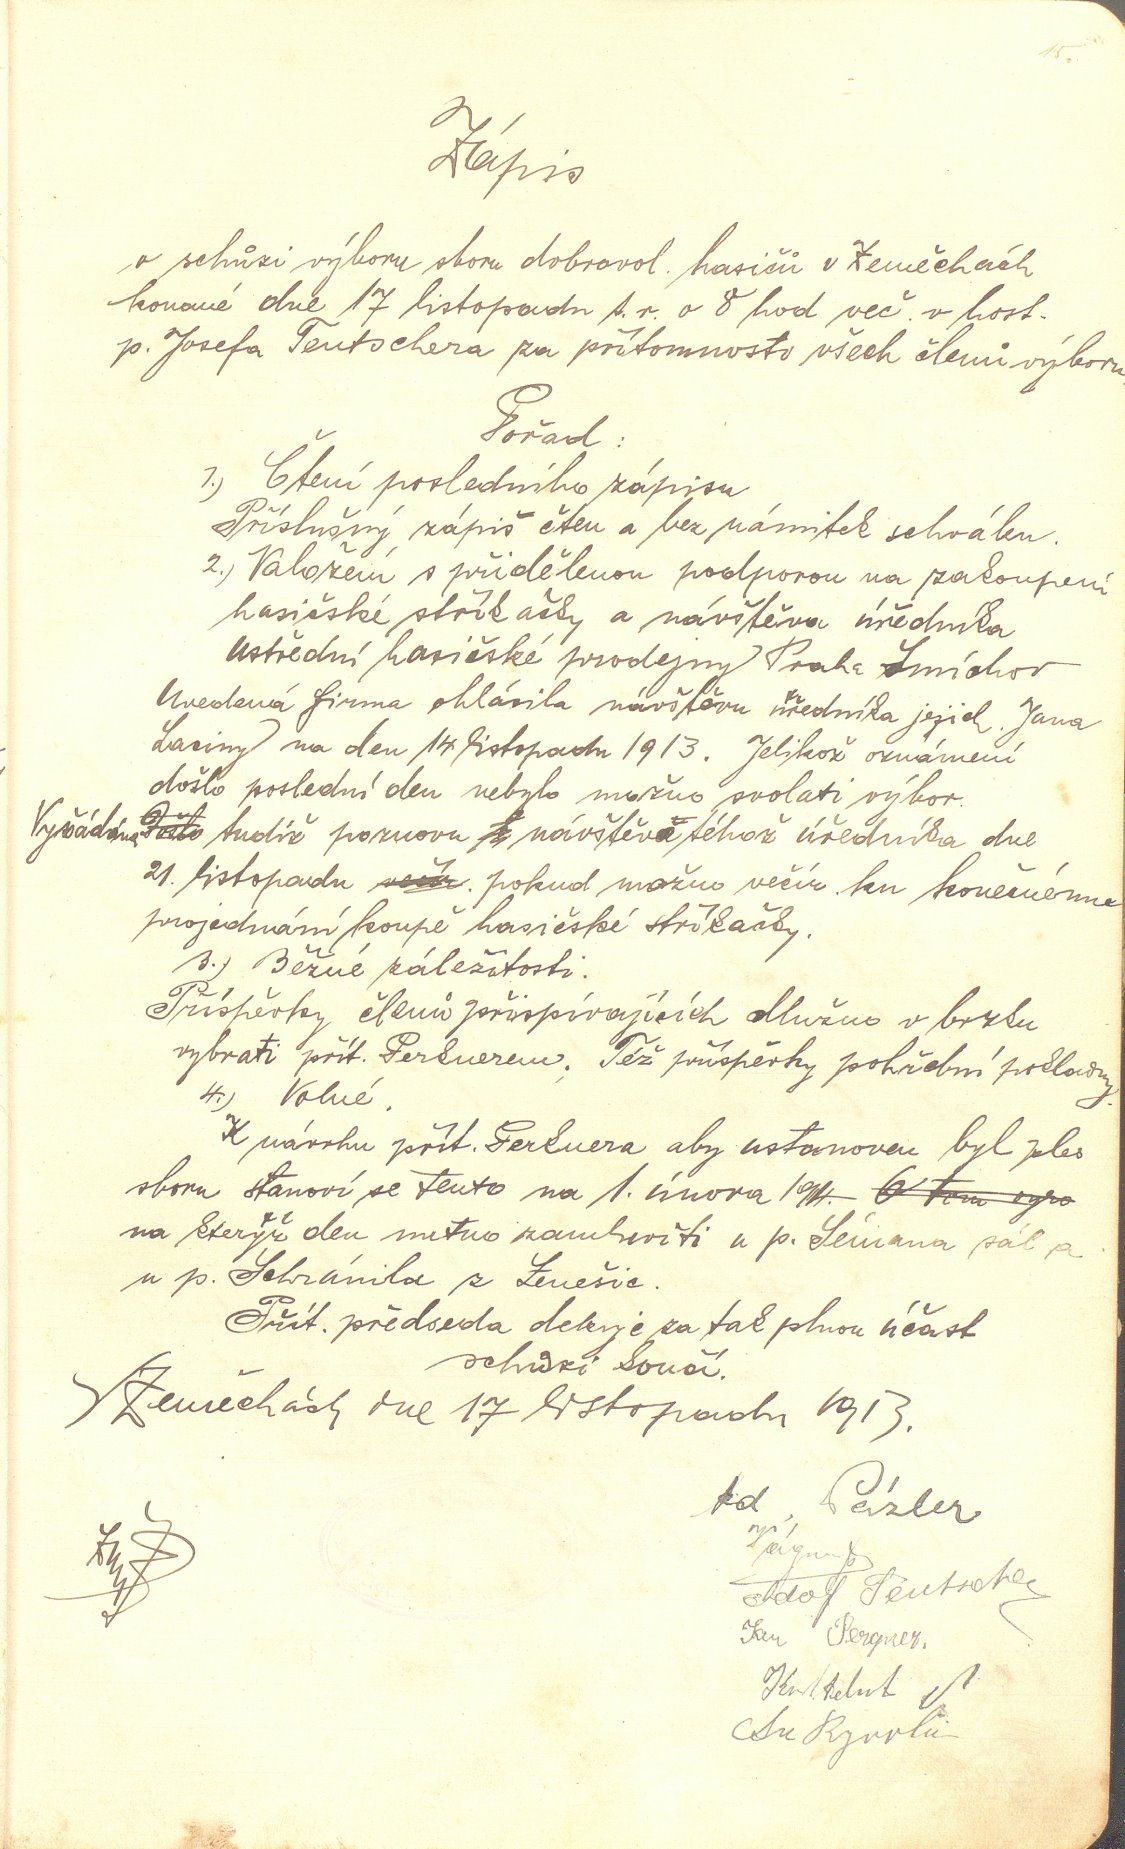 15.
Zápis
o schůzi výboru sboru dobrovol. hasičů v Zeměchách
konané dne 17 listopadu t. r. o 8 hod več. v host.
p. Josefa Teutschera za přítomnosto všech členů výboru.
Pořad:
1.) Čtení posledního zápisu
Příslušný zápis čten a bez námitek schválen.
2.) Naložení s přidělenou podporou na zakoupení
hasičské stříkačky a návštěva úředníka
ustřední hasičské prodejny Praha Smíchov
Uvedená firma ohlásila návštěvu úředníka jejich Jana
Laciny na den 14 listopadu 1913. Jelikož oznámení
došlo poslední den nebylo možno svolati výbor.
Vyžádána tudíž poznovu návštěva téhož úředníka dne
21. listopadu večír. pokud možno večír ku konečnému
projednání koupě hasičské stříkačky.
3.) Běžné záležitosti.
Příspěvky členů přispívajících dlužno v brzku
vybrati přít. Perknerem. Též příspěvky pohřební pokladny.
4.) Volné.
K návrhu přít. Perknera aby ustanoven byl ples
sboru stanoví se tento na 1. února 1914. O tom
na kterýž den nutno zamluviti u p. Sémana sál a
u p. Schránila z Lenešic.
Přít. předseda dekuje za tak plnou účast
schůzi končí.
V Zeměchách dne 17 listopadu 1913.
Pázler
Adolf Teutscher
Jan Pergner.